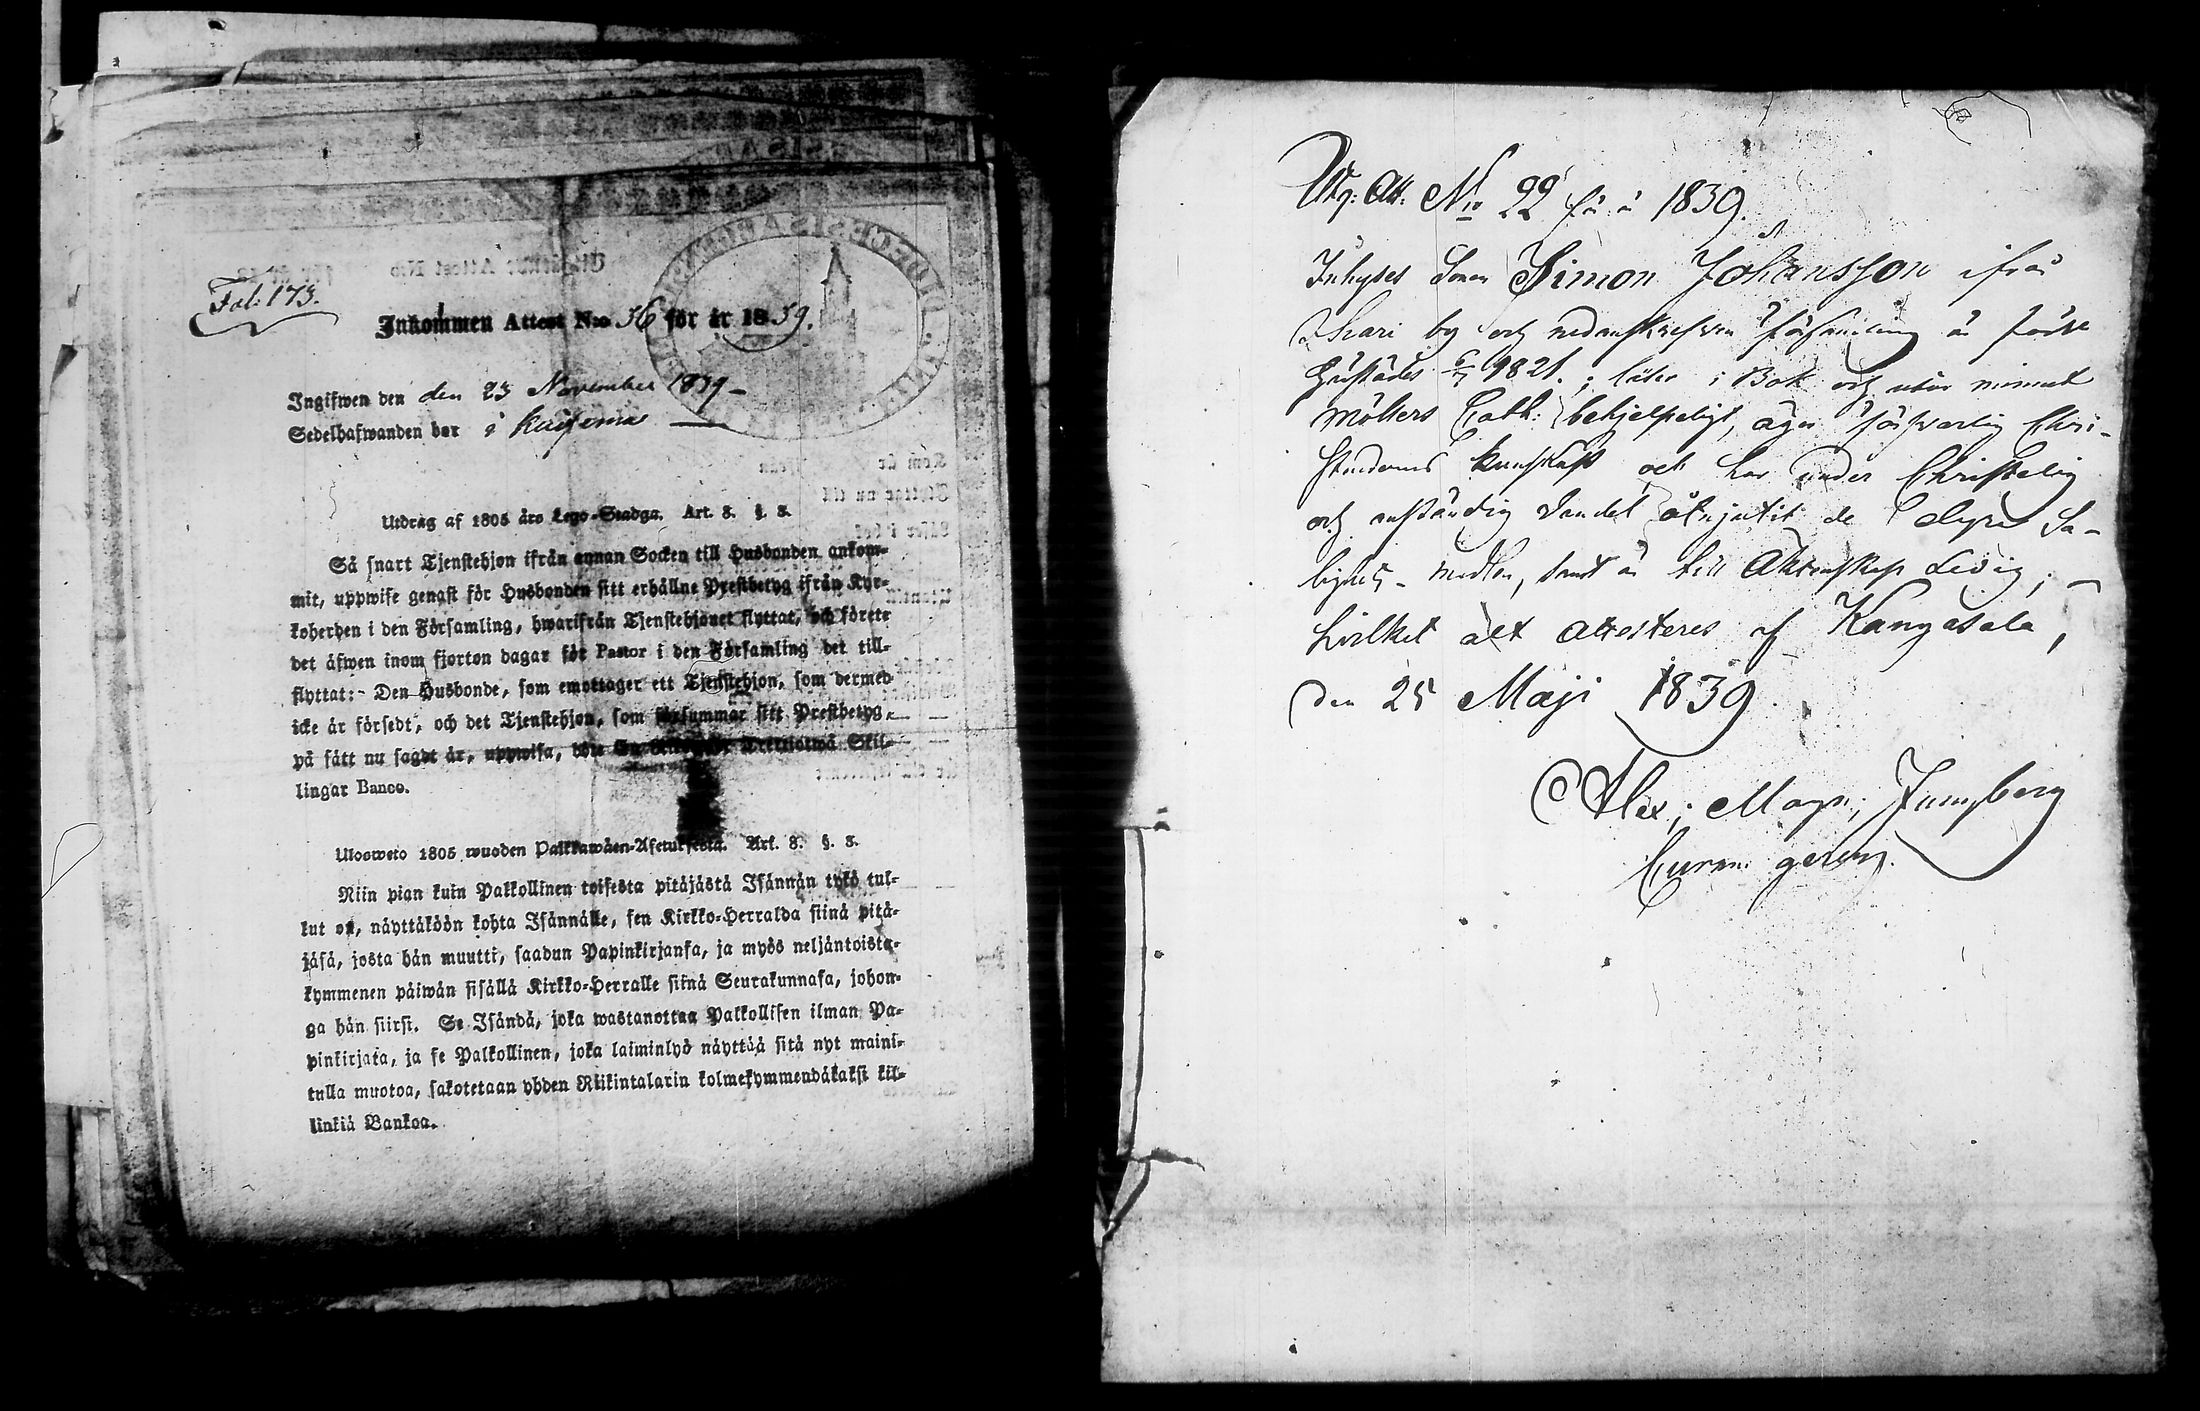 Fol: 173.
Inkommen Attest N:o 56 för år 1839.
Ingifwen den den 23 November 1839 –
Sedelhafwanden bor i
Utdrag af 1805 års Lego-Stadga. Art. 8. §. 3.
Så snart Tjenstehjon ifrån annan Socken till Husbonden ankom-
mit, uppwise genast för Husbonden sitt erhållne Prestbetyg ifrån Kyr-
koherden i den Församling, hwarifrån Tjenstehjonet flyttat, och förete
det äfwen inom fjorton dagar för Pastor i den Församling det till-
flyttat: - Den Husbonde, som emottager ett Tjenstehjon, som dermed
icke är försedt, och det Tjenstehjon, som försummar sitt Prestbetyg,
på sätt nu sagdt är, uppwisa, böte En Trettiotwå Skil-
lingar Banco.
Ulosweto 1805 wuoden Palkkawäen-Asetuksesta. Art. 8. §. 3.
Niin pian kuin Palkollinen toisesta pitäjästä Isännän tykö tul-
kut on, näyttäköön kohta Isännälle, sen Kirkko-Herralda siinä pitä-
jäsä, josta hän muutti, saadun Papinkirjansa, ja myös neljäntoista-
kymmenen päiwän sisällä Kirkko-Herralle siinä Seurakunnasa, johon-
ga hän siirsi. Se Isändä, joka wastanottaa Palkollisen ilman Pa-
pinkirjata, ja se Palkollinen, joka laiminlyö näyttää sitä nyt maini-
tulla muotoa, sakotetaan yhden Riikintalarin kolmekymmendäkaksi kil-
linkiä Bankoa.
Utg: Att. N:o 22 för år 1839.
Inhyses Sonen Simon Johansson ifrån
by och nedanskrefven församling är född
1821.; läser i Bok och utur minnet
Möllers Cath: behjelpeligt, äger försvarlig Chri-
stendoms kunskap och har under Christelig
och anständig vandel åtnjutit de dyra Sa-
lighets-medlen, samt är till Äktenskap Ledig; –
hvilket alt attesteres af Kangasala,
den 25 Maji 1839.
Alex; Magn; Jungberg